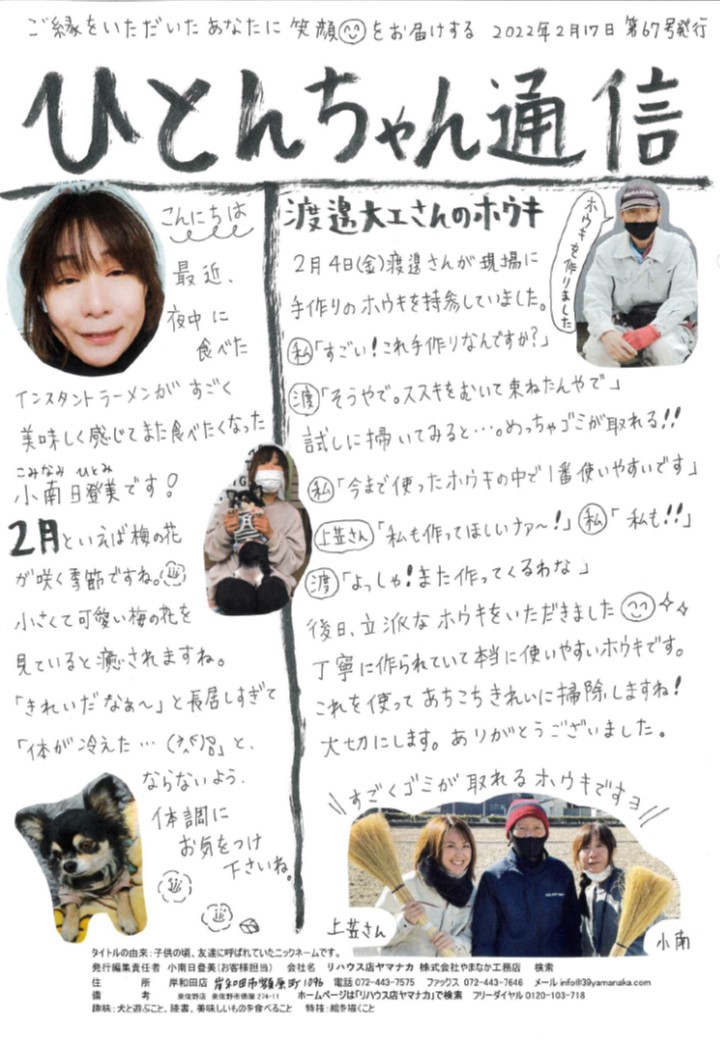 ご縁をいただいたあなたに 笑顔をお届けする 2022年2月17日 第67号発行
ひとんちゃん通信
こんにちは
最近、
夜中に
食べた
インスタントラーメンが すごく
美味しく感じてまた食べたくなった
こみなみ ひとみ
小南日登美です!
2月といえば梅の花
が咲く季節ですね。
小さくて可愛い梅の花を
見ていると癒されますね。
「きれいだなぁ〜」と長居しすぎて
「体が冷えた…」と、
ならないよう、
体調に
お気をつけ
下さいね。
渡邉大工さんのホウキ
ホウキを作りました
2月4日(金)渡邉さんが現場に
手作りのホウキを持参していました。
私「すごい!これ手作りなんですか?」
渡「そうやで。ススキをむいて束ねたんやで」
試しに掃いてみると…。めっちゃゴミが取れる!!
私「今まで使ったホウキの中で1番使いやすいです」
上笠さん「私も作ってほしいナァ〜!」私「私も!!」
渡「よっしゃ!また作ってくるわな」
後日、立派なホウキをいただきました
丁寧に作られていて本当に使いやすいホウキです。
これを使って あちこちきれいに掃除しますね!
大切にします。ありがとうございました。
すごくゴミが取れるホウキですヨ
上笠さん
小南
タイトルの由来:子供の頃、友達に呼ばれていたニックネームです。
発行編集責任者 小南日登美(お客様担当) 会社名 リハウス店ヤマナカ 株式会社やまなか工務店 検索
住 所 岸和田店 岸和田市額原町1096 電話 072-443-7575 ファックス 072-443-7646 メール info@39yamanaka.com
備 考 泉佐野店 泉佐野市鶴原 274-11 ホームページは「リハウス店ヤマナカ」で検索 フリーダイヤル 0120-103-718
趣味:犬と遊ぶこと、読書、美味しいものを食べること 特技:絵を描くこと